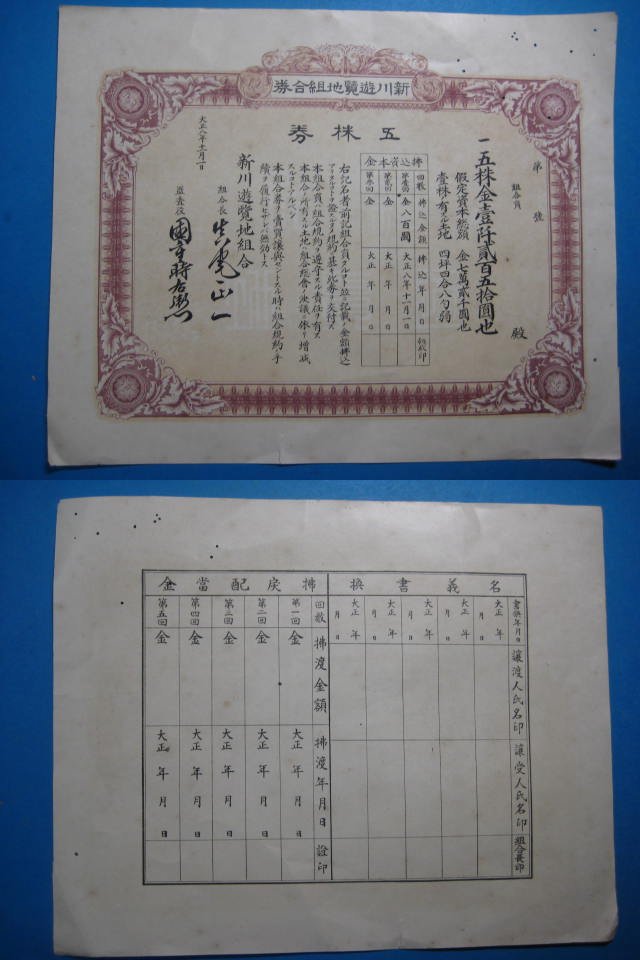 新川遊覽地組合券
五株券
第 號
組合員
殿
一五株金壹阡貳百五拾圓也
假定資本總額 金七萬貳千圓也
壹株有スル土地 四坪四合八勺弱
拂込資本金
回數 拂込金額 拂込年月日 領收印
第壹回 金八百圓 大正八年十一月一日
第貳回 金 大正 年 月 日
第參回 金 大正 年 月 日
右記名者ハ前記組合員タルコト並ニ記載ノ金額拂込
アリタルコトヲ證スル爲メ規約ニ基キ此券ヲ交付ス
本組合員ハ組合規約ヲ遵守スル責任ヲ有ス
本組合ノ所有スル土地ハ組合總會ノ決議ニ依リ增減
スルコトアルベシ
本組合券ヲ賣買讓與セントスル時ハ組合規約ノ手
續ヲ履行セザレバ無効トス
新川遊覽地組合
組合長
正一
監査役
大正八年十一月一日
名義書換
書換年月日 讓渡人氏名印 讓受人氏名印 組合長印
大正 年 月 日
大正 年 月 日
大正 年 月 日
大正 年 月 日
大正 年 月 日
拂戾配當金
回數 拂渡金額 拂渡年月日 證印
第一回 金 大正 年 月 日
第二回 金 大正 年 月 日
第三回 金 大正 年 月 日
第四回 金 大正 年 月 日
第五回 金 大正 年 月 日